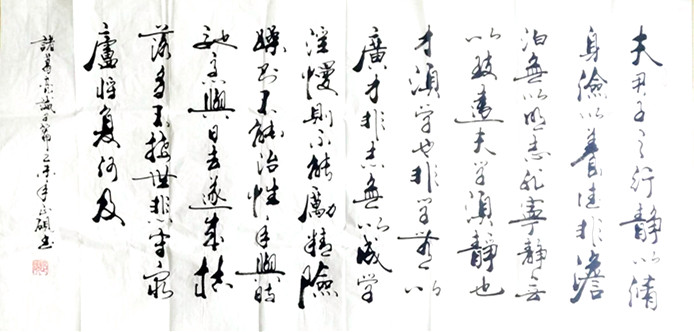 夫君子之行靜以脩
身儉以養德非澹
泊無以明志非寧靜無
以致遠夫学須靜也
才須学也非学無以
廣才非志無以成学
淫慢則不能勵精險
躁則不能治性年與時
馳意與日去遂成枯
落多不接世悲守窮
廬將復何及
諸葛亮誡子 未年 碩書